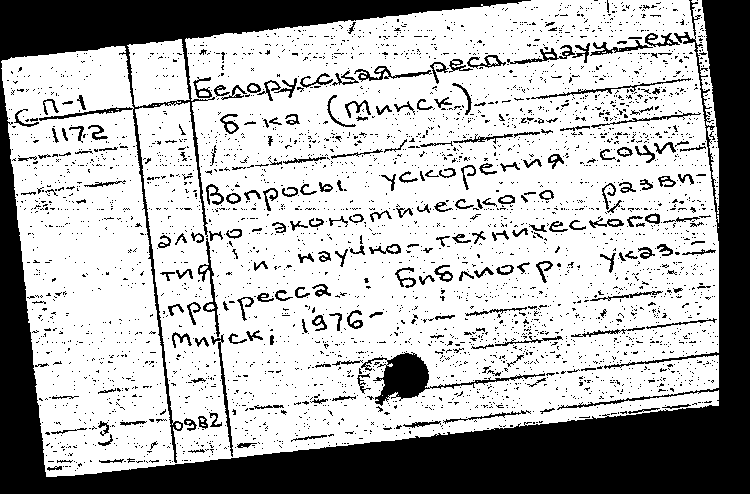 П-1
С 1172
Белорусская респ. науч.-техн
б-ка (Минск)
Вопросы ускорения соци-
ально-экономического разви-
тия и научно-технического
прогресса : Библиогр. указ. -
Минск, 1976-
3 0982